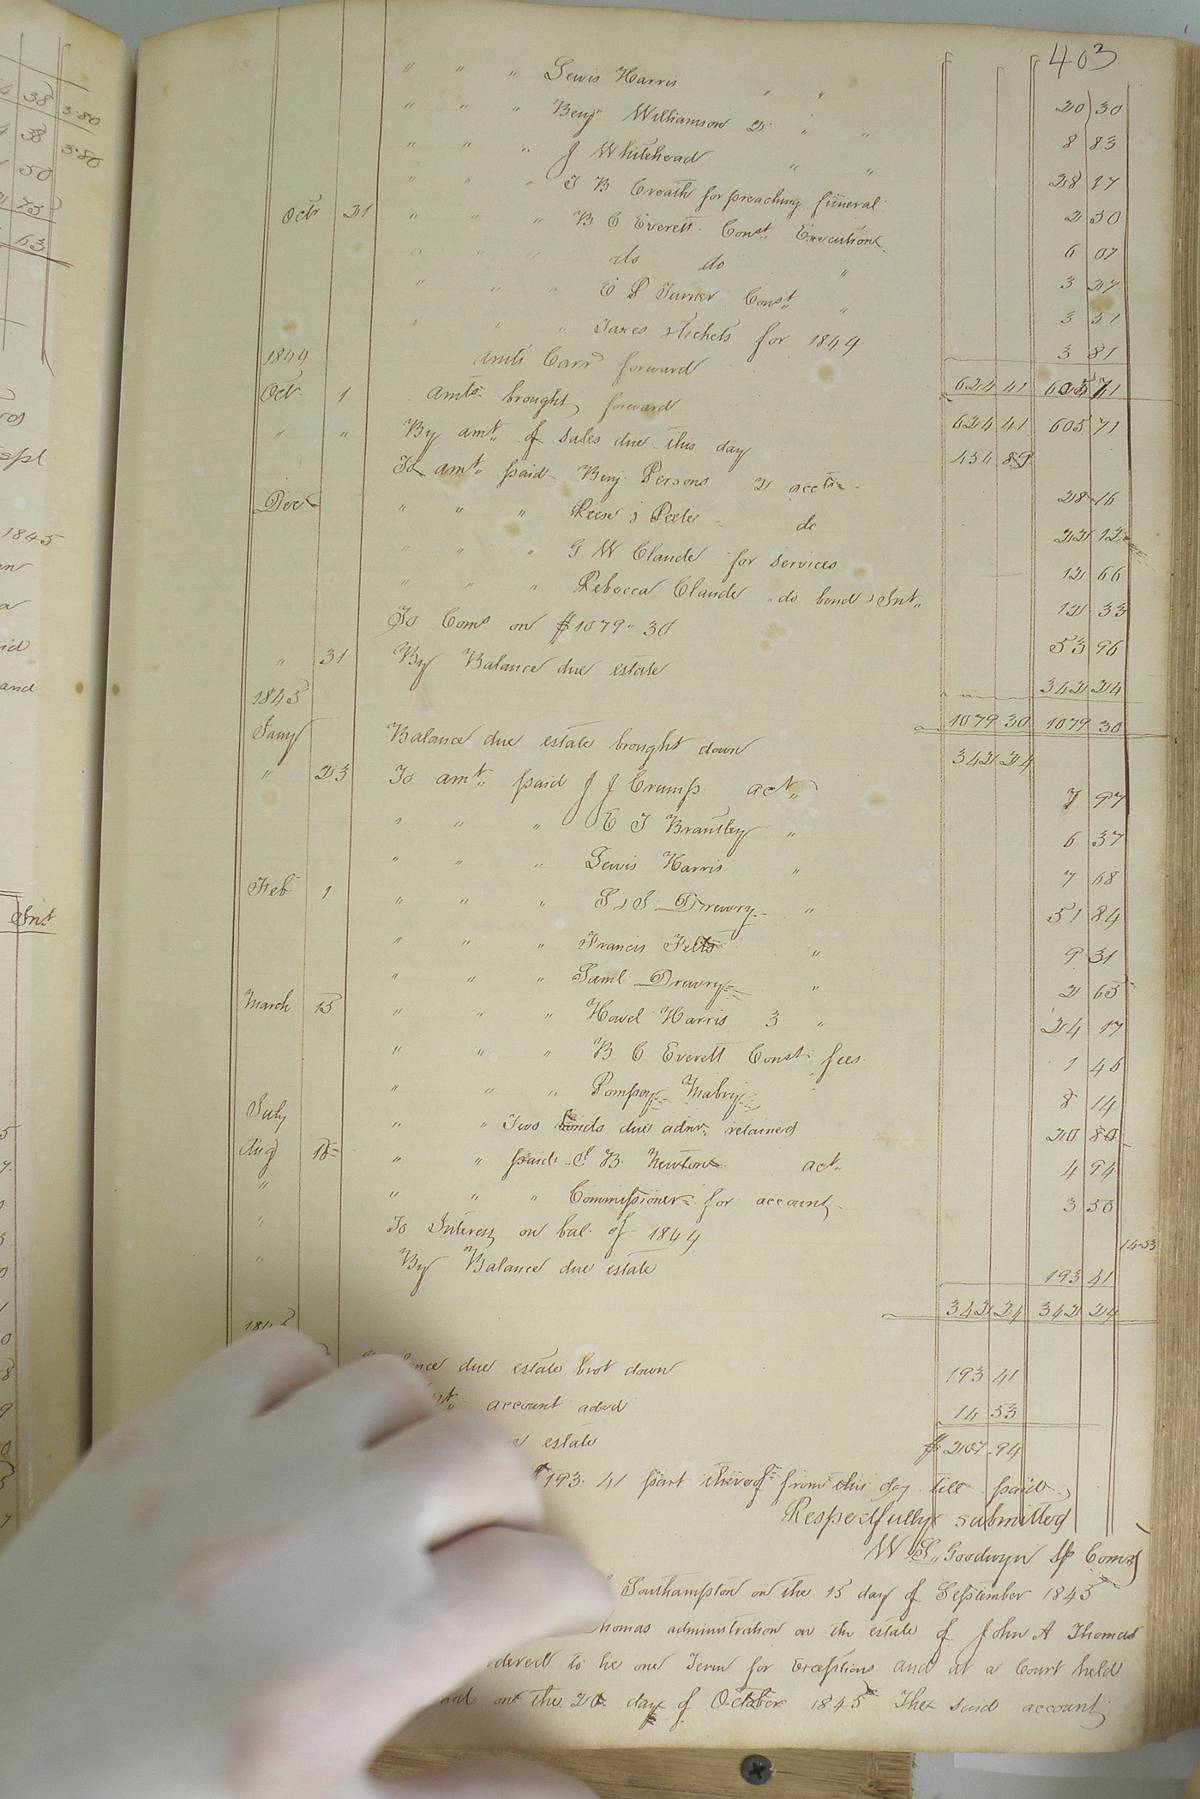 403
" " " Lewis Harris " " 20 30
" " " Benj Williamson 2 " " 8 83
" " " J Whitehead " " 28 17
" " " J B for preaching funeral 2 50
Oct 21 " " " B C Everett Const Executions 6 07
" " " do do " 3 27
" " " E P Turner Const " 3 51
" " " Taxes tickets for 1844 3 81
1844 amts Carr forward 624 41 605 71
Oct 1 amts brought forward 624 41 605 71
" " By amt of sales due this day 454 89
To amt paid Benj Persons 2 accts 28 16
Dec " " " Reese & Peete do 22 12
" " " G W Claude for services 12 66
" " " Rebecca Claude do bond & Int 12 33
To Coms on $1079 " 30 53 96
" 31 By Balance due estate 342 24
1845 1079 30 1079 30
Jany Balance due estate brought down 342 24
" 23 To amt paid J J Crump act 7 97
" " " E T Brantley " 6 37
" " " Lewis Harris " 7 68
Feb 1 " " " S & J Drewry " 51 84
" " " Francis Felts " 9 31
" " " Saml Drewry " 2 65
March 15 " " " Howel Harris 3 " 24 17
" " " B C Everett Const fees 1 46
" " " Pompey Mabry 8 14
July " " Two bonds due admr retained 20 80
Aug 18 " " paid J B Newton act 4 94
" " " " Commissioner for account 3 50
" To Interest on bal of 1844 14.53
" By Balance due estate 193 41
342 24 342 24
1845
due estate brot down 193 41
account added 14 53
estate $207.94
193 41 part thereof from this day till paid
Respectfully submitted
W S Goodwyn Sp Comr
Southampton on the 15 day of September 1845
administration on the estate of John A Thomas
to lie one Term for exceptions and at a Court held
on the 20 day of October 1845 The said account